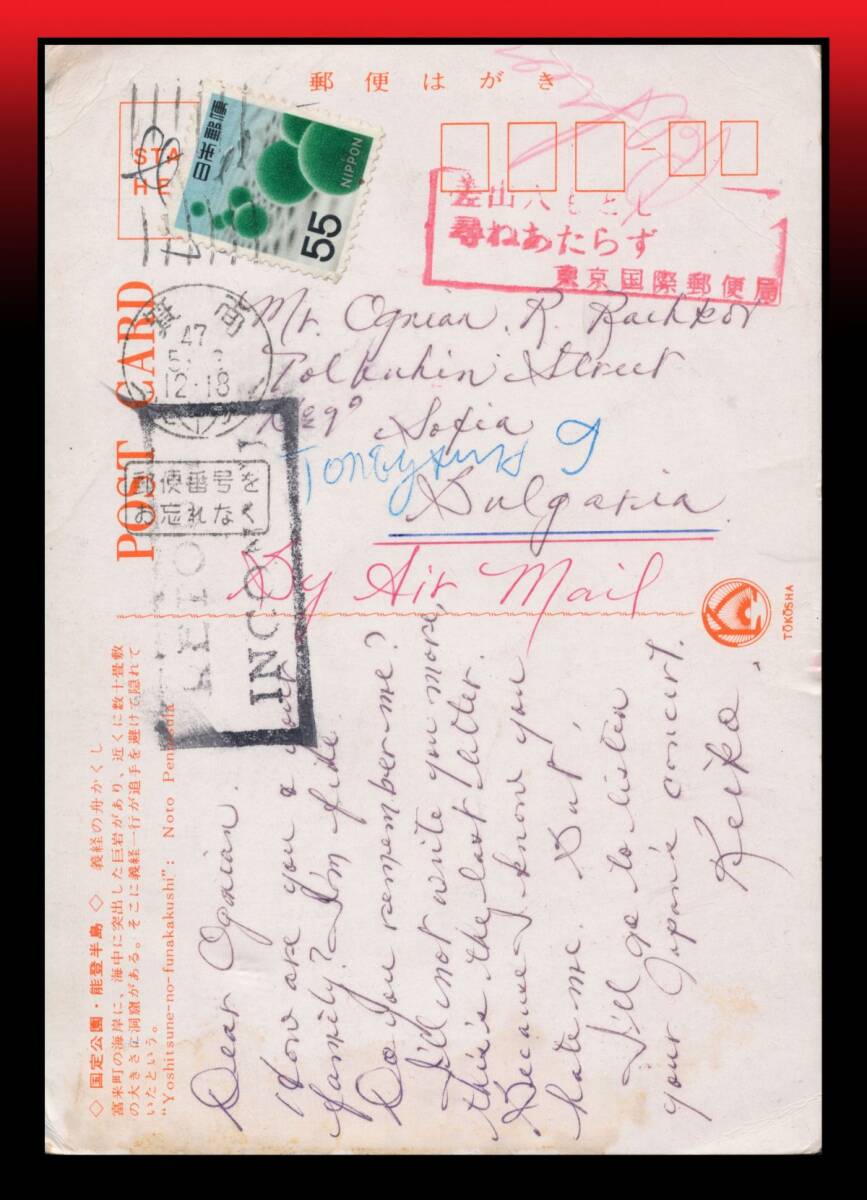 郵便はがき
STA
日本郵便
NIPPON
55
差出人もどし
尋ねあたらず
東京国際郵便局
POST CARD
47
12-18
郵便番号を
お忘れなく
Mr. Ognian. R. Rachkov
Tolbuhin Street
No 9 Sofia
Bulgaria
By Air Mail
INCO
TŌKŌSHA
◇国定公園・能登半島◇ 義経の舟かくし
富来町の海岸に、海中に突出した巨岩があり、近くに数十畳敷
の大きさに洞窟がある。そこに義経一行が追手を避けて隠れて
いたという。
"Yoshitsune-no-funakakushi": Noto Peninsula
Dear Ognian.
How are you & your
family? I'm fine.
Do you remember me?
I'll not write you more,
this's the last letter.
Because I know you
hate me. But,
I'll go to listen
your Japan's concert.
Keiko.